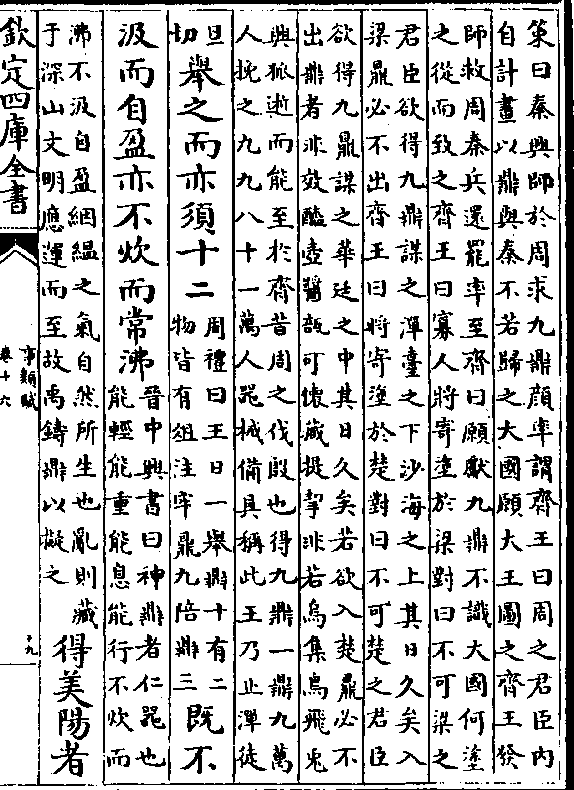 策曰秦興師於周求九鼎顔率謂齊王曰周之君臣内
自計畫以鼎與秦不若歸之大國願大王圖之齊王發
師救周秦兵還罷率至齊曰願獻九鼎不識大國何塗
之從而致之齊王曰寡人將寄塗於梁對曰不可梁之
君臣欲得九鼎謀之渾臺之下沙海之上其日久矣入
梁鼎必不出齊王曰將寄塗於楚對曰不可楚之君臣
欲得九鼎謀之華廷之中其日久矣若欲入楚鼎必不
出鼎者非效醯壺醬瓿可懷藏提挈非若烏集鳥飛兎
興狐逝而能至於齊昔周之伐殷也得九鼎一鼎九萬
人挽之九九八十一萬人器械備具稱此王乃止渾徒
旦
切
舉之而亦須十二
周禮曰王日一舉鼎十有二
物皆有俎注牢鼎九陪鼎三
既不
汲而自盈亦不炊而常沸
晉中興書曰神鼎者仁器也
能輕能重能息能行不炊而
沸不汲自盈絪緼之氣自然所生也亂則藏
于深山文明應運而至故禹鑄鼎以擬之
得美陽者
欽定四庫全書
事類賦
卷十六
十九